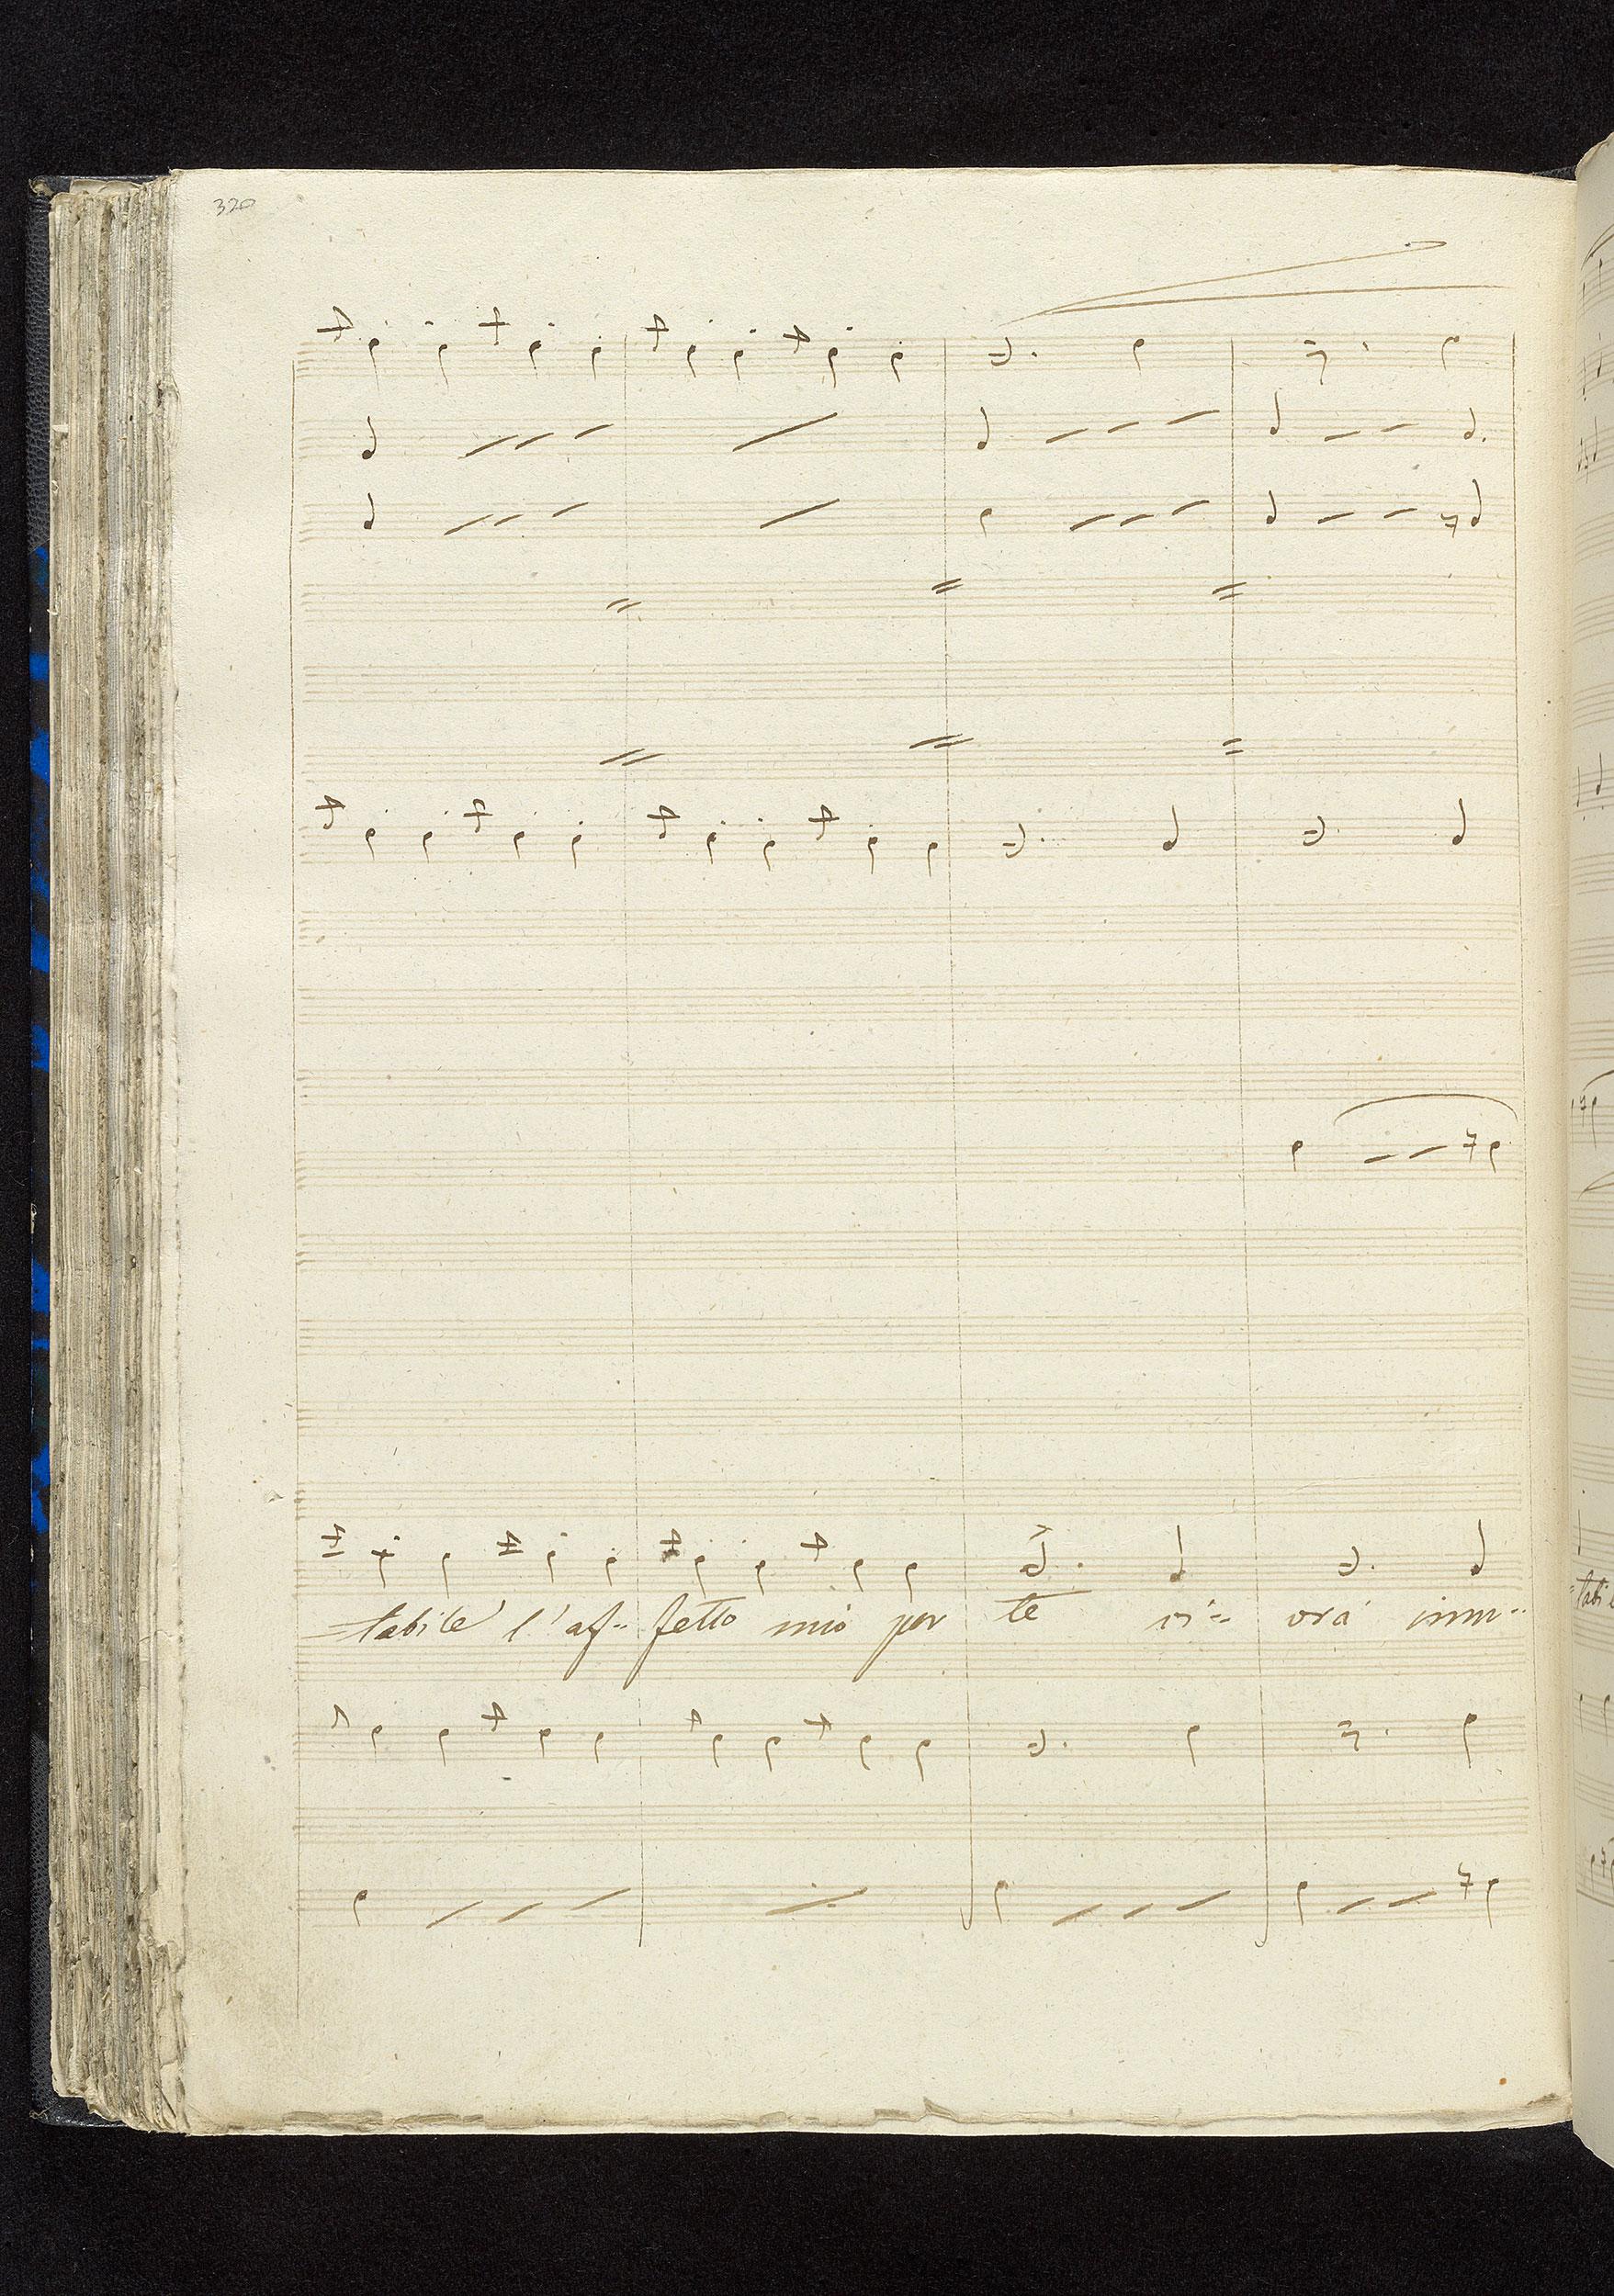 320
=tabile l'af= fetto mio per te vi= vrà immu=